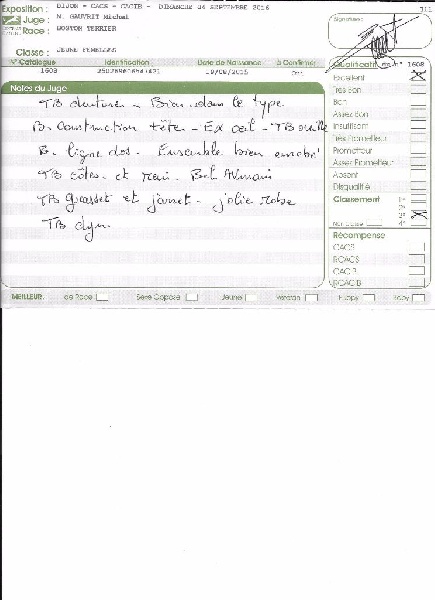 Exposition : DIJON - CACS - CACIB - DIMANCHE 04 SEPTEMBRE 2016
Juge : M. GAUVRIT Michel
Race : BOSTON TERRIER
Signature :
Classe : JEUNE FEMELLES
N° Catalogue Identification Date de Naissance à Confirmer
1608 Oui
Qualificatif N° 1608
Notes du Juge
TB denture - Bien dans le type
B. Construction tête - Ex oeil - TB oreille
B. ligne dos. Ensemble bien
TB côtes et rein. Bel
TB grasset et jarret - jolie robe
TB dym
Excellent
Très Bon
Bon
Assez Bon
Insuffisant
Très Prometteur
Prometteur
Assez Prometteur
Absent
Disqualifié
Classement 1er
2e
3e
Non classé 4e
Récompense
CACS
RCACS
CACIB
RCACIB
MEILLEUR: de Race Sexe Opposé Jeune Vétéran Puppy Baby